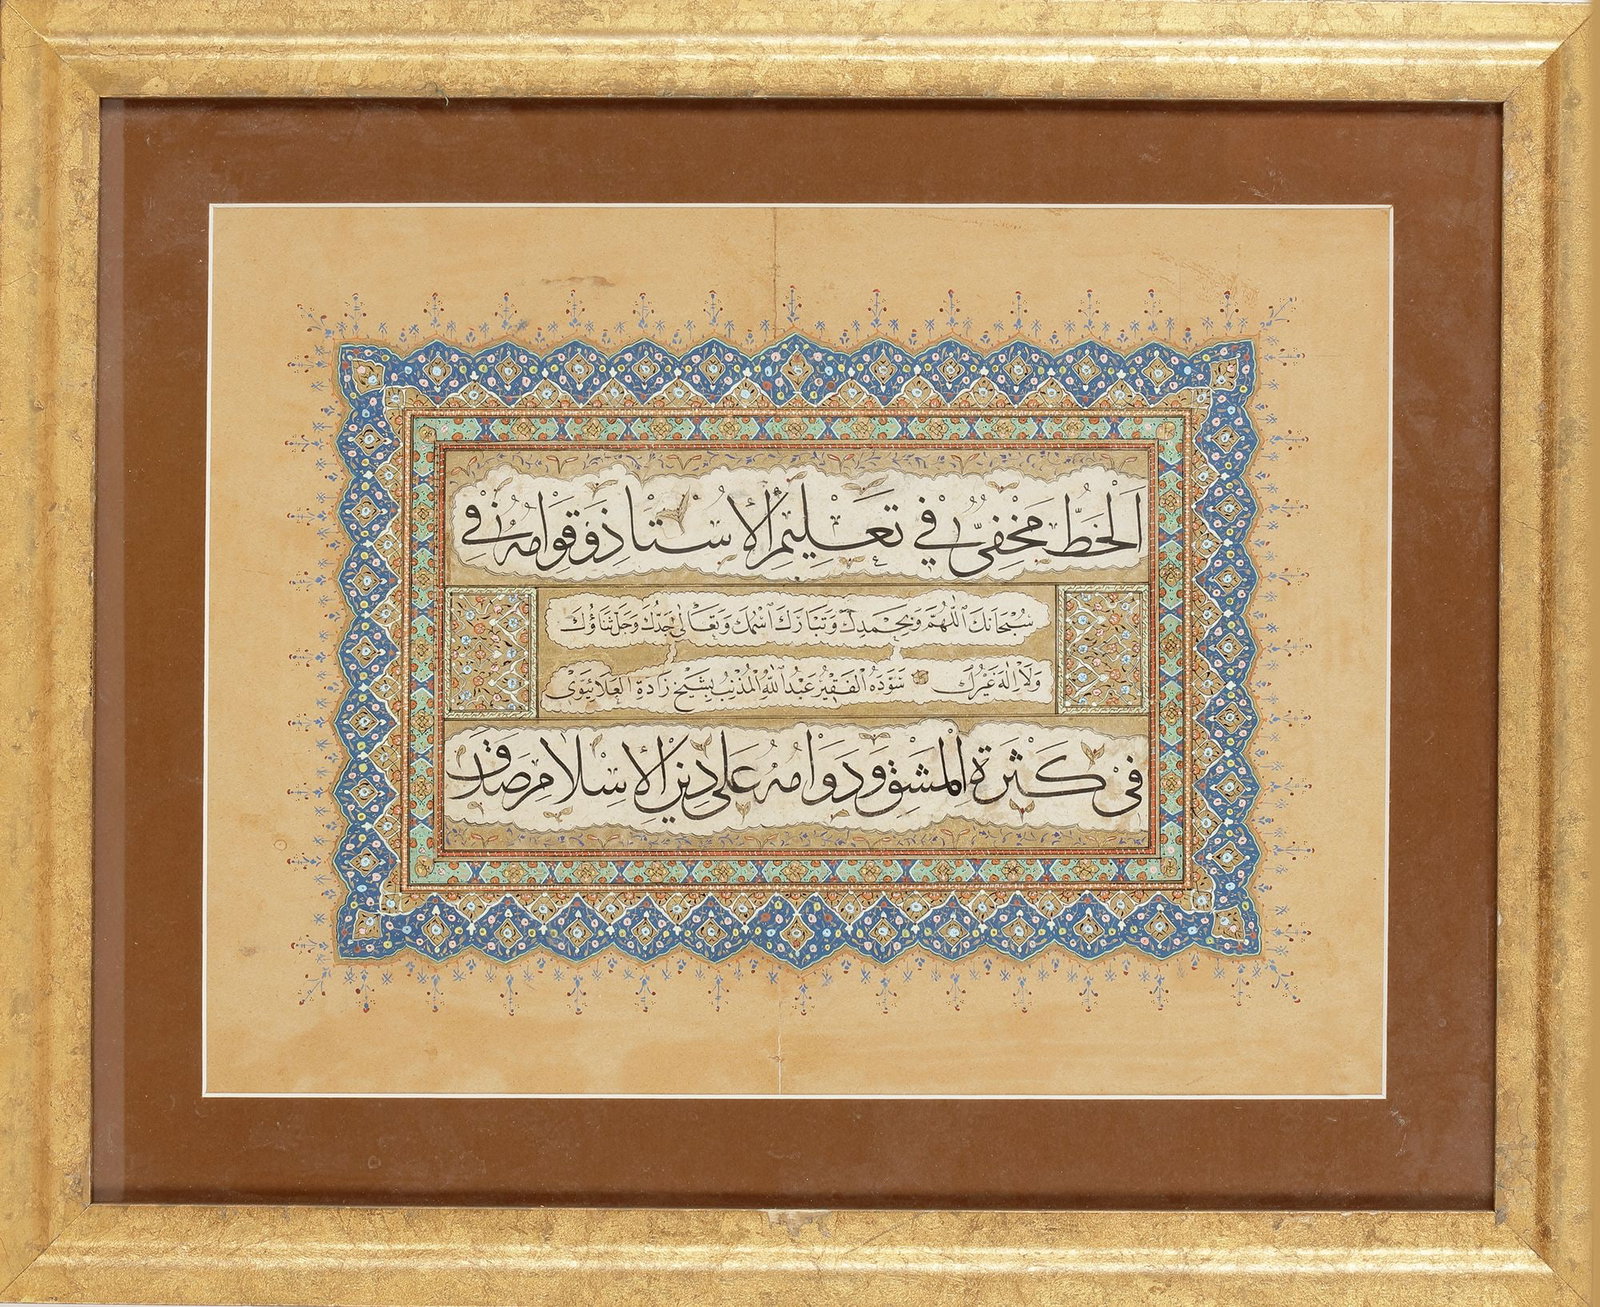 اَلْخَطُّ مَخْفِىٌّ فِي تَعْلِيْمِ الْأُسْتَاذِ وَقِوَامُهُ فِي
سُبْحَانَكَ اللّٰهُمَّ وَبِحَمْدِكَ وَتَبَارَكَ اسْمُكَ وَتَعَالٰى جَدُّكَ وَجَلَّ ثَنَاؤُكَ
وَلَا اِلٰهَ غَيْرُكَ سَوَّدَهُ الْفَقِيرُ عَبْدُ اللّٰهِ الْمُذْنِبُ بِشَيْخْ زَادَه الْعَلَائِيَوِى
فِى كَثْرَةِ الْمَشْقِ وَدَوَامُهُ عَلَى دِيْنِ الْإِسْلَامِ صَدَقَ